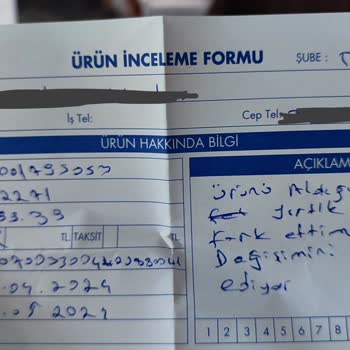 ÜRÜN İNCELEME FORMU ŞUBE :
İş Tel: Cep Tel:
ÜRÜN HAKKINDA BİLGİ
AÇIKLAM
2271
33.39
TL TAKSİT TL
.04.2024
.05 2024
ürünü Aldığ
Yırtık
fark ettim
Değişimini
ediyor
1 2 3 4 5 6 7 8